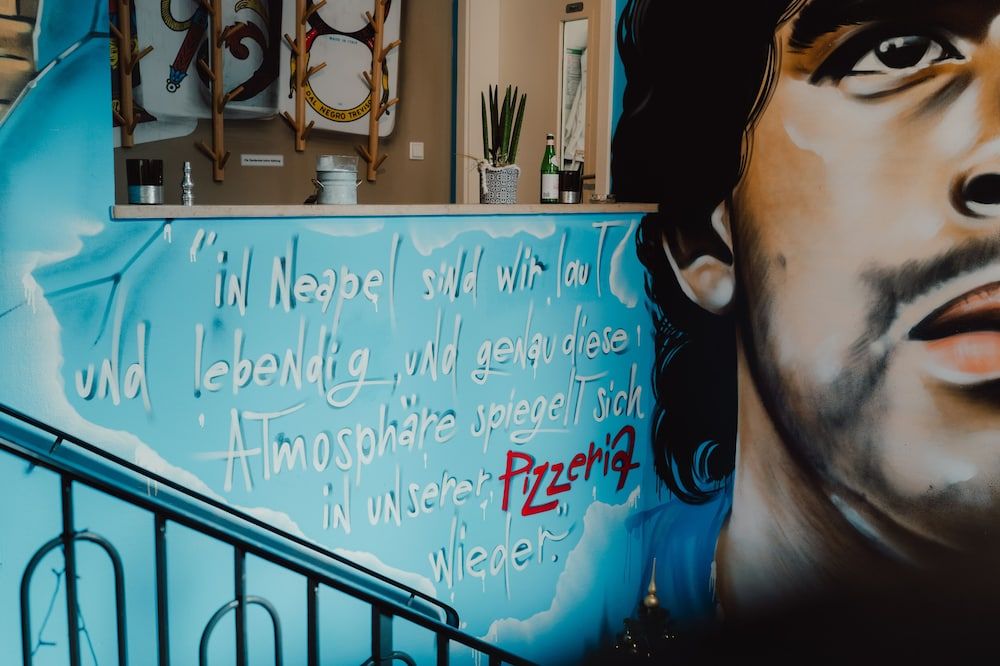 MADE IN ITALY
DAL NEGRO TREVISO
"iN Neapel sind wir lauT
und lebendig und genau diese
ATmosphäre spiegelT sich
in unserer Pizzeria
wieder."